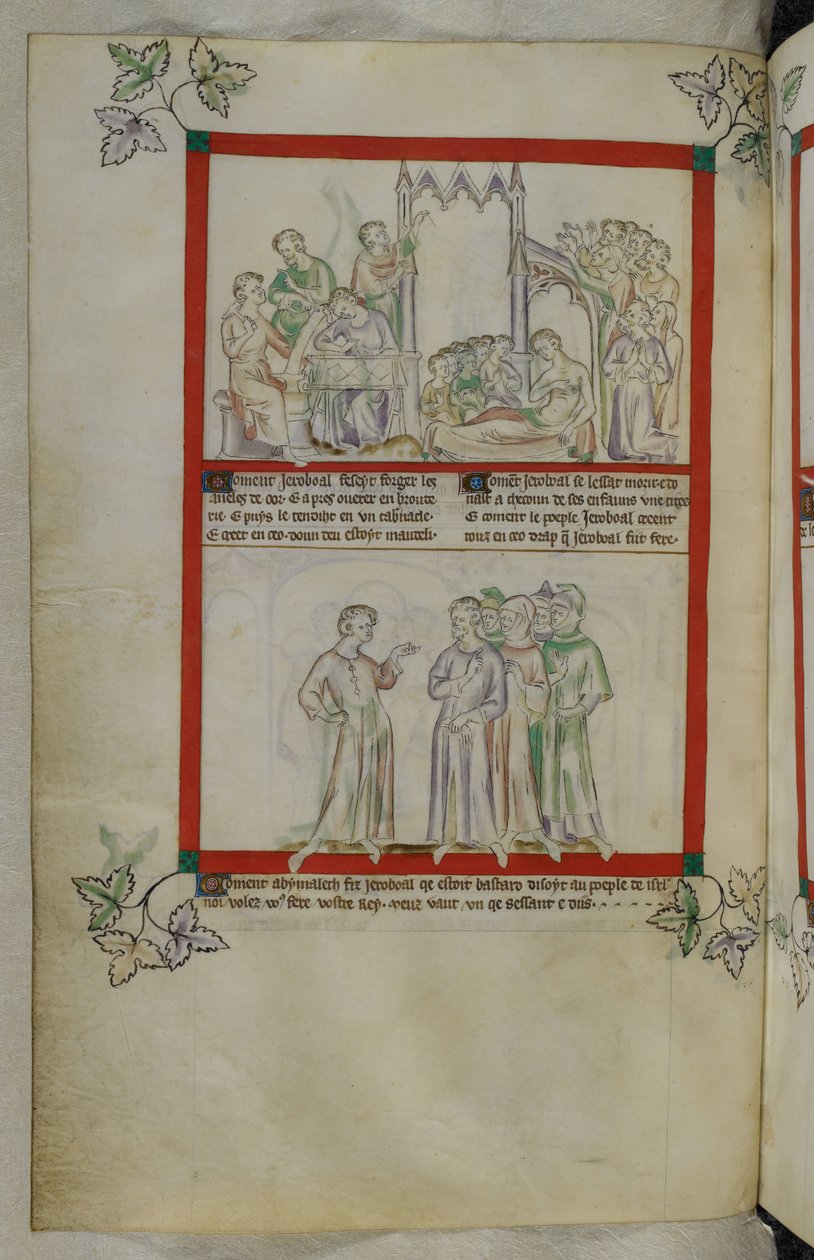 Coment Jeroboal feseyt forger les
aneles de oor. E apres ouerer en broude
rie. E puys le tendiht en vn tabnacle.
E creet en ceo. doun deu estoyt maudeli.
Coment Jeroboal se lessat morir e do
nast a checoun de ses enfauns vne citee
E coment le poeple Jeroboal creent
touz en ceo drap q̃ Jeroboal fiit fere.
Coment abymalech fiz Jeroboal qe estoit bastard disoyt au poeple de isrl'
noi volez vo9 fere vostre Rey. meuz vaut vn qe sessant e diis.